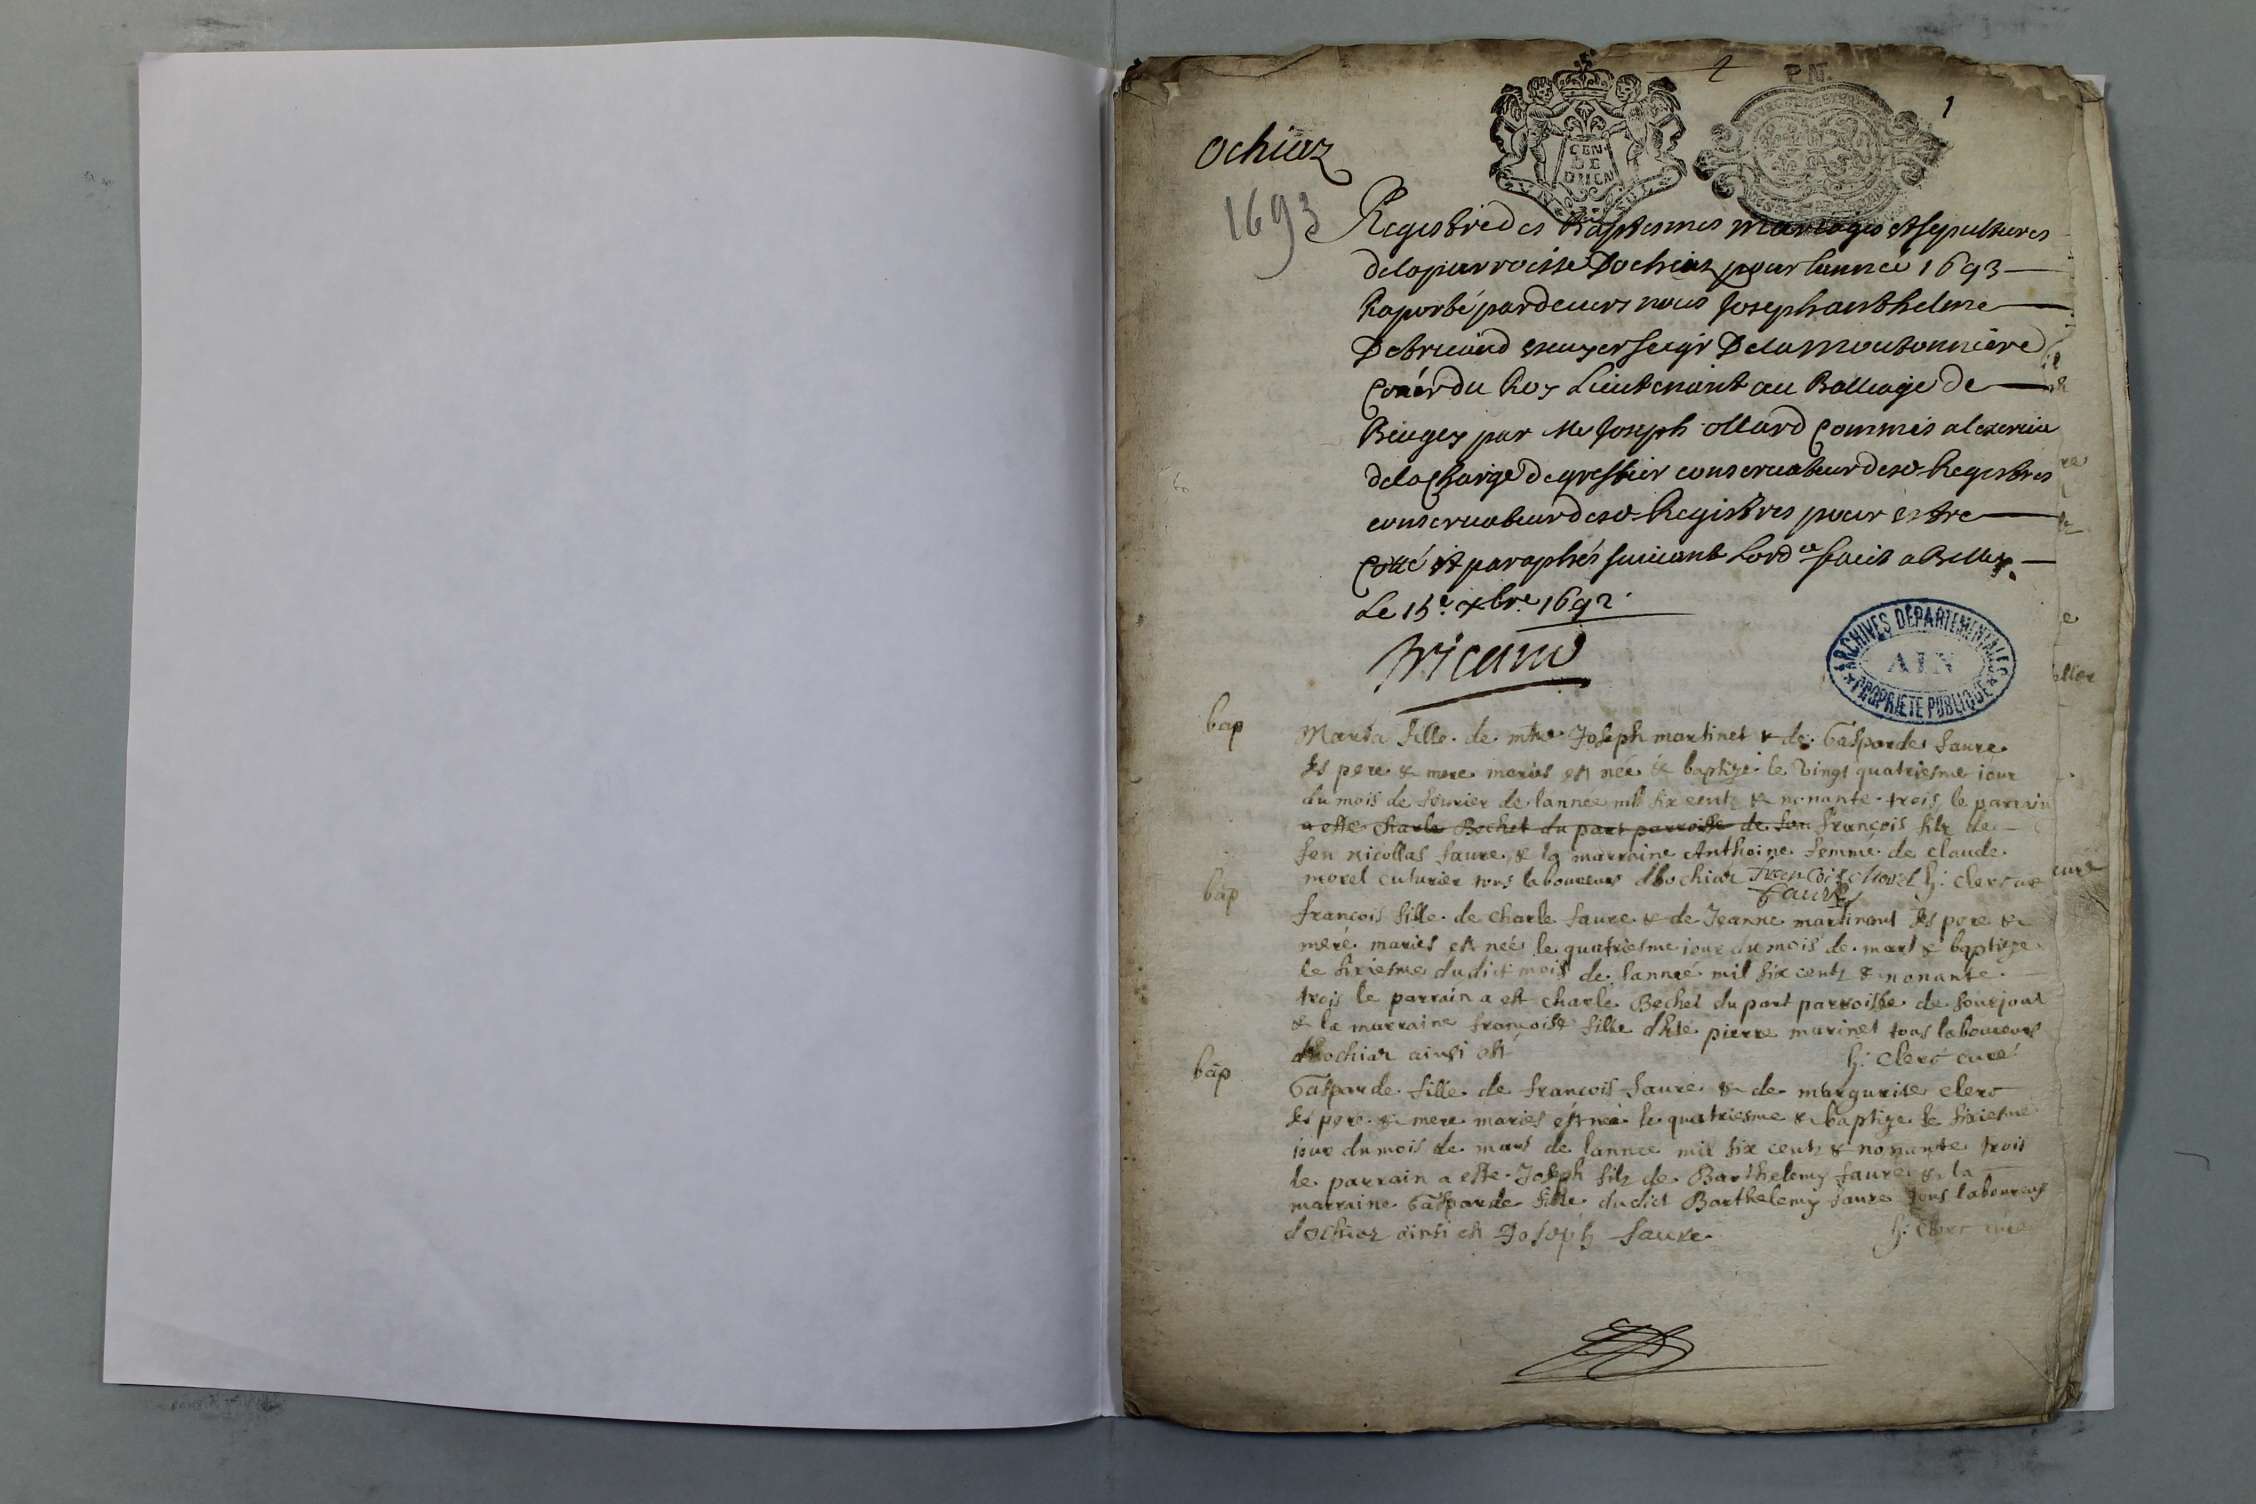 2
P.N.
1
Ochiaz
GEN
DE
1693
Registre des Baptesmes Mariages et sepultures
de la parroisse Dochiaz pour lannee 1693
Raporté pardeuers nous Joseph anthelme
De bricand escuyer seigr De la moutonniere
Coner du Roy Lieutenant au Balliage de
Beugey par Me Joseph ollard Commis a lexercice
de la Charge de greffier conseruateur desd Registres
conseruateur desd Registres pour estre
Cotté et paraphés suiuant Lordce faict a Belley
Le 15e xbre 1692.
Bricand
ARCHIVES DÉPARTEMENTALES
AIN
PROPRIÉTÉ PUBLIQUE
bap
Maria fille de mtre Joseph martinet & de Gasparde faure
ses pere & mere maries est née & baptizé le vingt quatriesme iour
du mois de feurier de lannée mil six centz & nonante trois le parrain
a esté Charle Bechet du part parroisse de françois filz de
feu nicollas faure & la marraine Anthoine femme de claude
morel cuturier tous laboureurs dhochiaz françois morel h: Clerc cure
faure
bap
francois fille de charle faure & de Jeanne martinant ses pere &
mere maries est neé le quatriesme iour du mois de mars & baptize
le sixiesme dudict mois de lanneé mil six centz & nonante
trois le parrain a est charle Bechet du part parroisse de sourjout
& la marraine francoise fille dhte pierre marinet tous laboureurs
dhochiaz ainsi est h: Clerc curé
bap
Gasparde fille de francois faure & de margurite clerc
ses pere & mere maries est neé le quatriesme & baptize le sixiesme
iour du mois de mars de lannee mil six centz & nonante trois
le parrain a este Joseph filz de Barthelemy faure & la
marraine Gasparde fille dudict Barthelemy faure tous laboureurs
dochiaz ainsi est Joseph faure h: Clerc curé